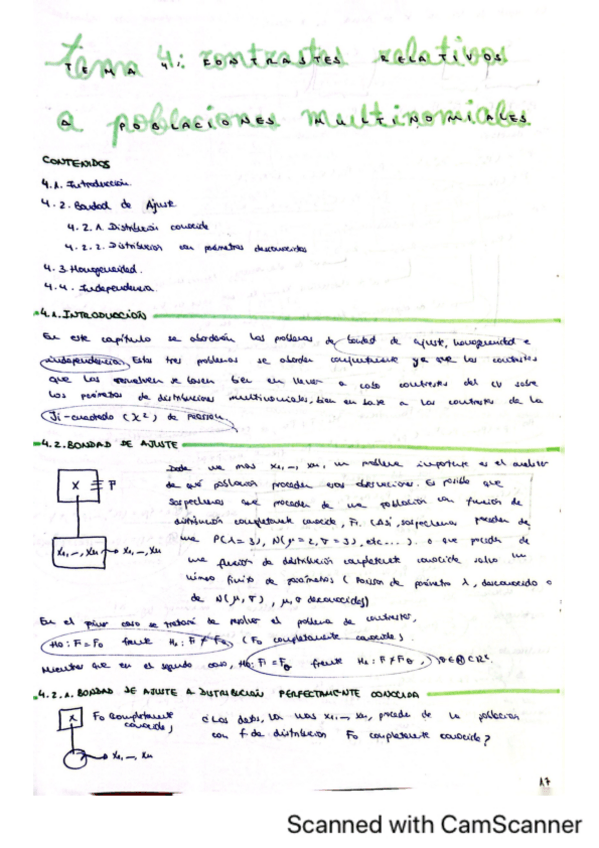 Tema 4: contrastes relativos
TEMA 4: CONTRASTES RELATIVOS
a poblaciones multinomiales
A POBLACIONES MULTINOMIALES
CONTENIDOS
4.1. Introducción.
4.2. Bondad de Ajuste
4.2.1. Distribución conocida
4.2.2. Distribución con parámetros desconocidos
4.3. Homogeneidad.
4.4. Independencia.
4.1. INTRODUCCIÓN
En este capítulo se abordarán los problemas de bondad de ajuste, homogeneidad e
independencia. Estos tres problemas se abordan conjuntamente ya que los contrastes
que los resuelven se basan bien en llevar a cabo contrastes del CV sobre
los parámetros de distribuciones multinomiales, bien en base a los contrastes de la
Ji-cuadrado (X²) de Pearson.
4.2. BONDAD DE AJUSTE
X F
X1, –, Xn → X1, –, Xn
Dada una mas X1, –, Xn, un problema importante es el analizar
de qué población proceden esas observaciones. Es posible que
sospechemos que proceden de una población con función de
distribución completamente conocida, F. (Así, sospechamos proceden de
una P(λ=3), N(μ=2, σ=3), etc...). o que proceden de
una función de distribución completamente conocida salvo un
número finito de parámetros (Poisson de parámetro λ, desconocido o
de N(μ, σ), μ, σ desconocidos)
En el primer caso se tratará de resolver el problema de contraste,
H0: F = F0 frente H1: F ≠ F0 (F0 completamente conocida)
Mientras que en el segundo caso, H0: F = Fθ frente H1: F ≠ Fθ, θ ∈ Θ ⊂ Rᵏ.
4.2.1. BONDAD DE AJUSTE A DISTRIBUCIÓN PERFECTAMENTE CONOCIDA
X F0 completamente conocida;
X1, –, Xn
¿Los datos, la mas X1, –, Xn, procede de la población
con f. de distribución F0 completamente conocida?
17
Scanned with CamScanner